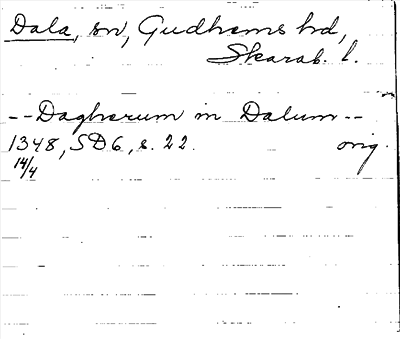 Dala, sn, Gudhems hd,
Skarab. l.
-- Dagherum in Dalum --
1348, SD6, s. 22. orig.
14/4